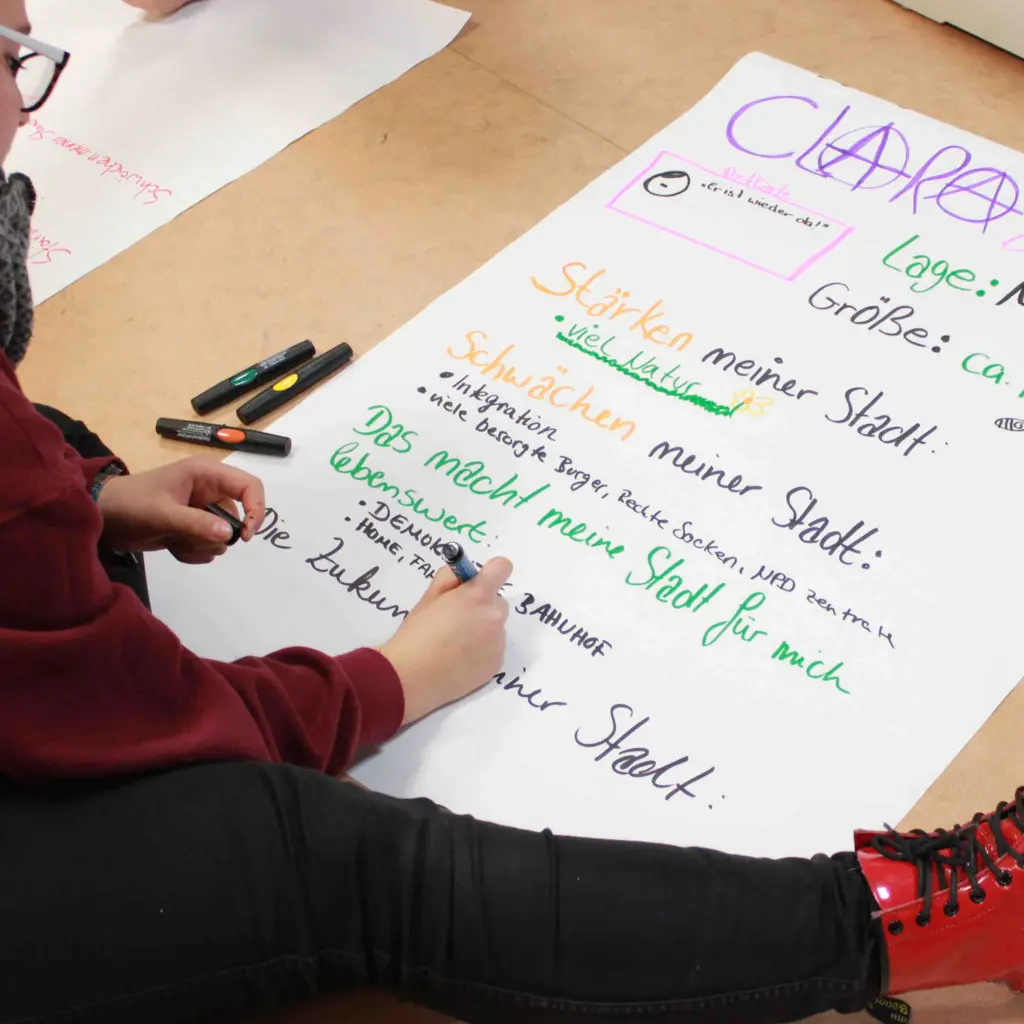 CLARA
Postkarte
"Er ist wieder da!"
Lage:
Größe: ca.
Stärken meiner Stadt:
• viel Natur
Schwächen meiner Stadt:
• Integration
• viele besorgte Bürger, Rechte Socken, NPD zentrale
Das macht meine Stadt für mich
lebenswert:
• DEMOK
• HOME, FA BAHNHOF
Die Zukun iner Stadt:
Schwächen meiner Stadt